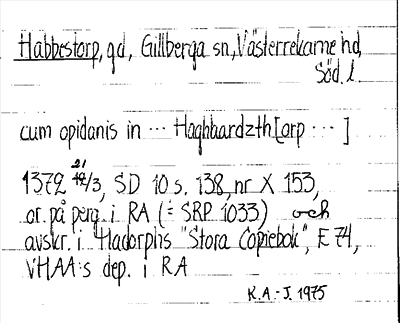 Habbestorp, gd, Gillberga sn, Västerrekarne hd,
Söd. l.
cum opidanis in ··· Haghbardzth[orp ··· ]
1372 21/3, SD 10 s. 138, nr X 153,
or. på perg. i RA (= SRP 1033) och
avskr. i Hadorphs "Stora Copiebok", E 74,
VHAA:s dep. i RA
K.A.-J. 1975